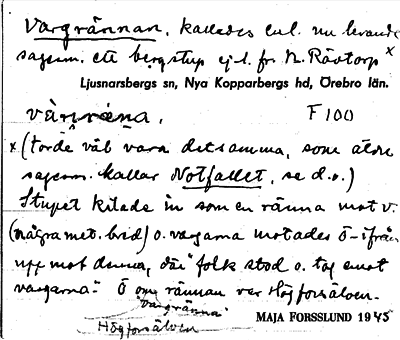 Vargrännan, kallades enl. nu levande
sagesm. ett bergstup ej l. fr. N. Rävtorp x
Ljusnarsbergs sn, Nya Kopparbergs hd, Örebro län.
vàrräna. F 100
x (torde väl vara detsamma, som äldre
sagesm. kallar Notfallet, se d.o.)
Stupet kilade in som en ränna mot v.
(några met. bred) o. vargarna motades ö- ifrån
upp mot denna, där "folk stod o. tog emot
vargarna". Ö om rännan var Högforsälven.
"Vargränna"
Högforsälven
MAJA FORSSLUND 1945